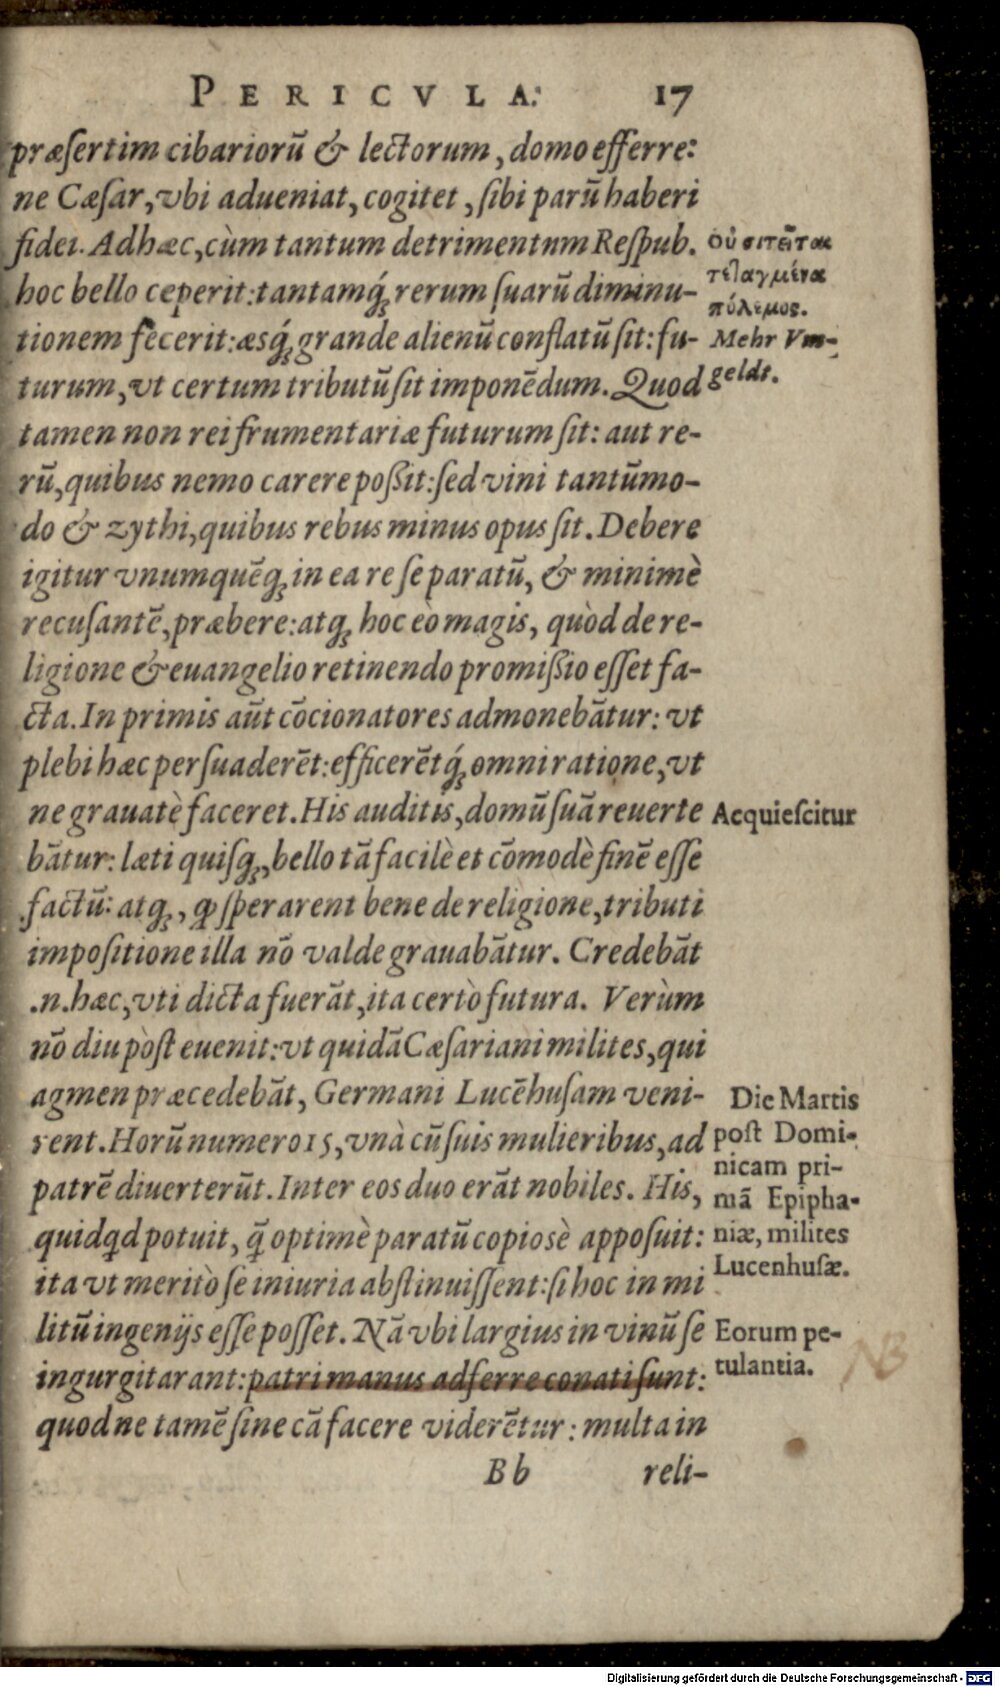 PERICVLA. 17
præſertim cibariorū & lectorum, domo efferre:
ne Cæſar, vbi adueniat, cogitet, ſibi parū haberi
fidei. Ad hæc, cùm tantum detrimentnm Reſpub.
hoc bello ceperit: tantamq́; rerum ſuarū diminu-
tionem fecerit: æsq́; grande alienū conflatū ſit: fu-
turum, vt certum tributū ſit imponēdum. Quod
tamen non rei frumentariæ futurum ſit: aut re-
rū, quibus nemo carere poßit: ſed vini tantūmo-
do & zythi, quibus rebus minus opus ſit. Debere
igitur vnumquēq; in ea re ſe paratū, & minimè
recuſantē, præbere: atq; hoc eò magis, quòd de re-
ligione & euangelio retinendo promißio eſſet fa-
cta. In primis aūt cōcionatores admonebātur: vt
plebi hæc perſuaderēt: efficerētq́; omni ratione, vt
ne grauatè faceret. His auditis, domū ſuā reuerte
bātur: læti quiſq;, bello tā facilè et cōmodè finē eſſe
factū: atq;, ꝙ ſperarent bene de religione, tributi
impoſitione illa nō valde grauabātur. Credebāt
.n. hæc, vti dicta fuerāt, ita certò futura. Verùm
nō diu pòſt euenit: vt quidā Cæſariani milites, qui
agmen præcedebāt, Germani Lucēhuſam veni-
rent. Horū numero 15, vnà cū ſuis mulieribus, ad
patrē diuerterūt. Inter eos duo erāt nobiles. His,
quidqd potuit, q̃ optimè paratū copioſè appoſuit:
ita vt meritò ſe iniuria abſtinuiſſent: ſi hoc in mi
litū ingenijs eſſe poſſet. Nā vbi largius in vinū ſe
ingurgitarant: patri manus adferre conati ſunt:
quod ne tamē ſine cā facere viderētur: multa in
Bb reli-
οὐ σιτεῖται
τεταγμένα
πόλεμος.
Mehr Vm-
geldt.
Acquieſcitur
Die Martis
poſt Domi-
nicam pri-
mā Epipha-
niæ, milites
Lucenhuſæ.
Eorum pe-
tulantia.
NB
Digitalisierung gefördert durch die Deutsche Forschungsgemeinschaft - DFG